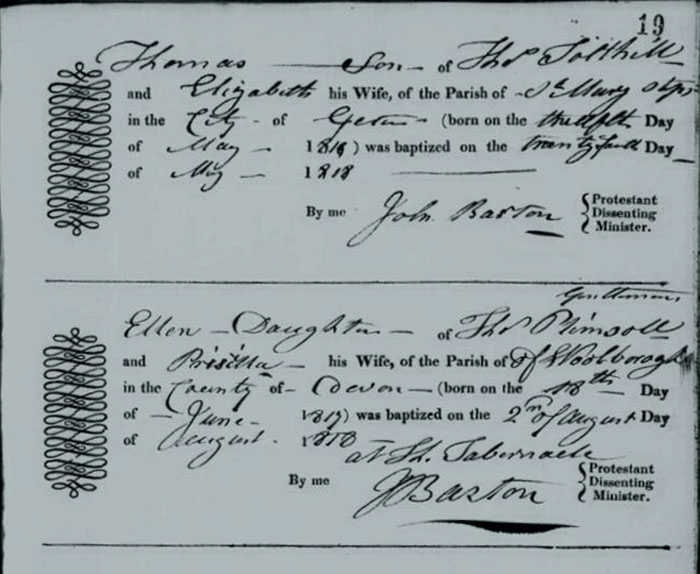 19
Thomas Son of Thos Tothill
and Elizabeth his Wife, of the Parish of St Mary Steps
in the City of Exeter (born on the twelfth Day
of May 1818) was baptized on the twenty Day
of May 1818
By me John Barton { Protestant
Dissenting
Minister.
Gentleman
Ellen Daughter of Thos Plimsoll
and Prisilla his Wife, of the Parish of Woolborough
in the County of Devon (born on the 18th Day
of June 1819) was baptized on the 2nd of August Day
of August 18
at The Tabernacle
By me J Barton { Protestant
Dissenting
Minister.